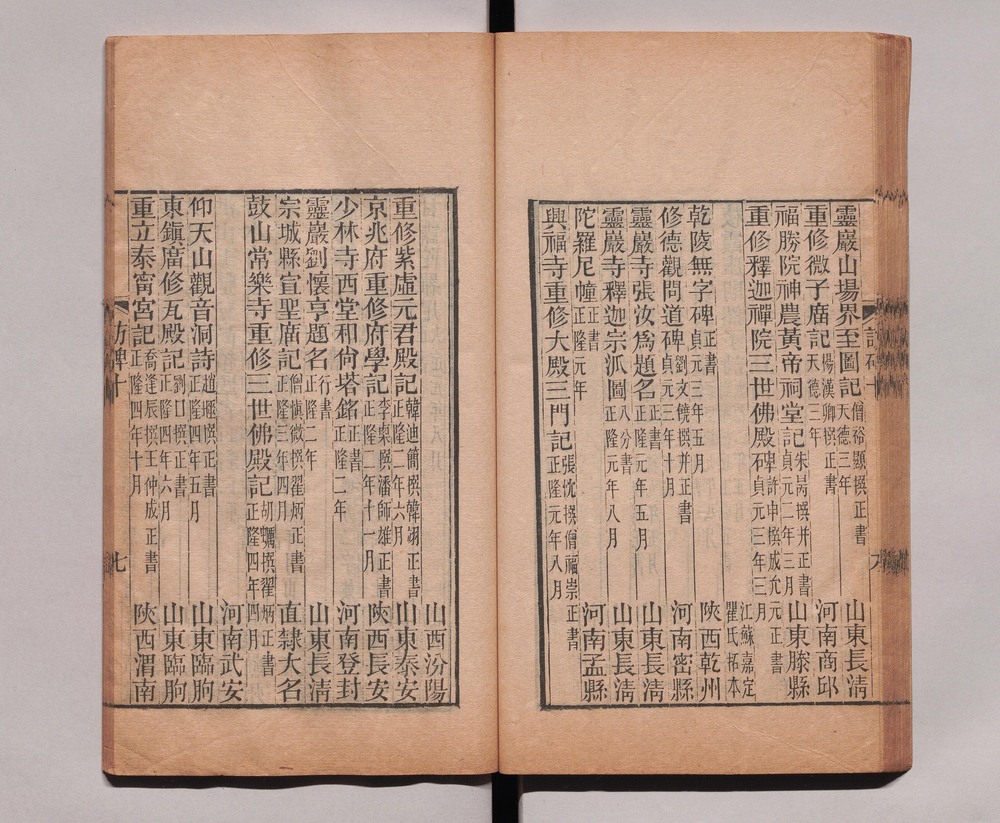 靈巖山場界至圖記 僧裕顯撰正書 天德三年 山東長清
重修微子廟記 楊漢卿撰正書 天德三年 河南商邱
福勝院神農黃帝祠堂記 朱曷撰并正書 貞元二年三月 山東滕縣
重修釋迦禪院三世佛殿碑 許申撰成允元正書 貞元三年三月 江蘇嘉定瞿氏拓本
乾陵無字碑 正書 貞元三年五月 陝西乾州
修德觀問道碑 劉文饒撰并正書 貞元三年十月 河南密縣
靈巖寺張汝為題名 正書 正隆元年五月 山東長清
靈巖寺釋迦宗派圖 八分書 正隆元年八月 山東長清
陀羅尼幢 正書 正隆元年 河南孟縣
興福寺重修大殿三門記 張忱撰僧福崇正書 正隆元年八月
山西汾陽
重修紫虛元君殿記 韓迪簡撰韓翊正書 正隆二年六月 山東泰安
京兆府重修府學記 李㮚撰潘師雄正書 正隆二年十一月 陝西長安
少林寺西堂和尙塔銘 正書 正隆二年 河南登封
靈巖劉懷亨題名 行書 正隆二年 山東長清
宗城縣宣聖廟記 僧愼微撰翟炳正書 正隆三年四月 直隸大名
鼓山常樂寺重修三世佛殿記 胡礪撰翟炳正書 正隆四年四月
河南武安
仰天山觀音洞詩 趙撰正書 正隆四年五月 山東臨朐
東鎭廟修瓦殿記 劉口撰正書 正隆四年六月 山東臨朐
重立泰甯宮記 喬逢辰撰王仲成正書 正隆四年十月 陝西渭南
訪碑十
七